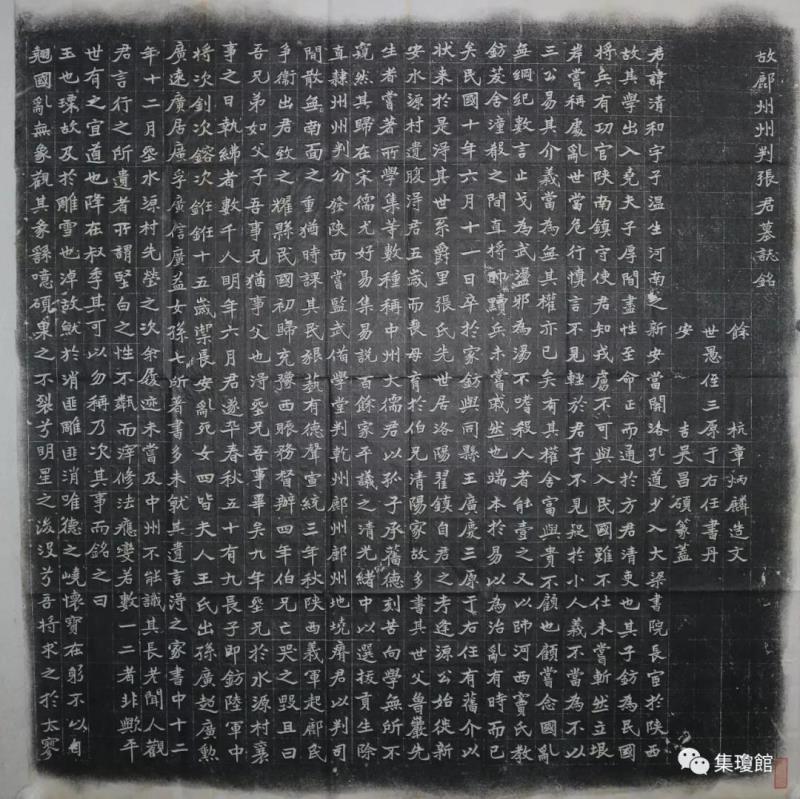 故鄜州州判張君墓誌銘
餘杭章炳麟造文
世愚侄三原于右任書丹
安吉吳昌碩篆蓋
君諱清和字子溫生河南之新安當關洛孔道少入大梁書院長官於陝西
故其學出入堯夫子厚閒盡性至命正而通於方君清吏也其子鈁為民國
將兵有功官陝南鎮守使君知戎虜不可與入民國雖不仕未嘗斬然立垠
岸嘗稱處亂世當危行慎言不見輕於君子不見疑於小人義不當為不以
三公易其介義當為無其權亦已矣有其權舍富與貴不顧也顧嘗念國亂
無綱紀數言止戈為武盪邪為湯不嗜殺人者能壹之又以師河西竇氏教
鈁茇舍潼之間直將帥黷兵未嘗戚然也端本於易以為治亂有時而已
矣民國十年六月十一日卒於家鈁與同縣王廣慶三原于右任有舊介以
狀來於是淂其世系爵里張氏先世居洛陽翟鎮自君之考逢源公始徙新
安水源村遺腹淂君五歲而喪母育於伯兄清陽家故多書其世父魯巖先
生者嘗著所學集等數種稱中州大儒君以孤子承舊德刻苦向學無所不
窺然其歸在宋儒尤好易集易說百餘家平議之清光緒中以選拔貢生除
直隸州州判分發陝西嘗監武備學堂判乾州鄜州鄜州地境瘠君以判司
閒散無南面之重猶時課其民樹藝有德聲宣統三年秋陝西義軍起鄜民
爭衛出君致之耀縣民國初歸充豫西賑務督辦四年伯兄亡哭之毀且曰
吾兄弟如父子吾事兄猶事父也淂塟兄吾事畢矣九年塟兄於水源村襄
事之日執紼者數千人明年六月君遂卒春秋五十有九長子即鈁陸軍中
將次釗次鎔次銋銋十五歲禦長安亂死女四皆夫人王氏出孫廣超廣勲
廣遠廣居廣孚廣信廣益女孫七所著書多未就其遺言淂之家書中十二
年十二月塟水源村先塋之次余屐迹未嘗及中州不能識其長老聞人觀
君言行之所遺者所謂堅白之性不而滓修法應變若數一二者非歟平
世有之宜道也降在叔季其可以勿稱乃次其事而銘之曰
玉也璞故及於雕雪也淖故於消匪雕匪消唯德之嶢懷寶在躬不以自
翹國亂無象觀其象繇噫碩果之不裂兮明星之後没兮吾將求之於太寥
集瓊館